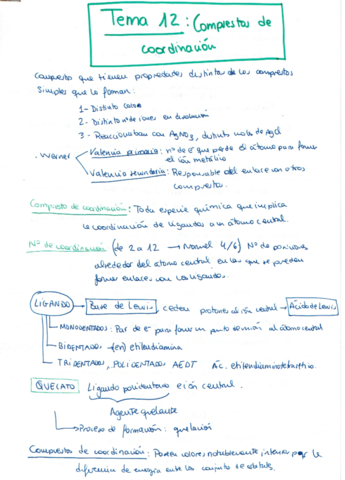 Tema 12: Compuestos de
coordinación
Compuesto que tienen propiedades distintas de los compuestos
simples que lo forman:
1- Distinto color
2- Distinto nº de iones en disolución
3- Reaccionaban con AgNO3, distinto mols de AgCl
Werner
Valencia primaria: nº de e- que pierde el átomo para formar
el ión metálico
Valencia secundaria: Responsable del enlace con otros
compuestos.
Compuesto de coordinación: Toda especie química que implica
la coordinación de ligandos a un átomo central.
Nº de coordinación (de 2 a 12 → Normal 4/6) Nº de posiciones
alrededor del átomo central en las que se pueden
formar enlaces con los ligandos.
LIGANDO → Base de Lewis, ceden protones al ión central → Ácido de Lewis
MONODENTADOS: Par de e- para formar un punto de unión al átomo central
BIDENTADOS → (en) etilendiamina
TRIDENTADOS, POLIDENTADOS AEDT Ác. etilendiaminotetracético
QUELATO Ligando polidentado e ión central.
Agente quelante
Proceso de formación: quelación
Compuestos de coordinación: Poseen colores notablemente intensos por la
diferencia de energía entre los conjuntos de orbitales.